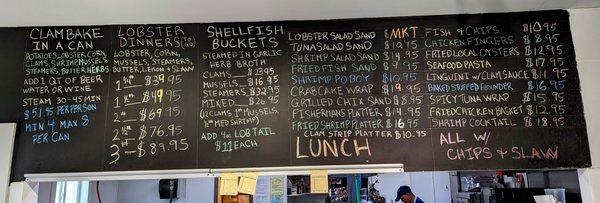 CLAMBAKE
IN A CAN
POTATOES, LOBSTER, CORN,
CLAMS, SHRIMP, MUSSELS,
STEAMERS, BUTTER, HERBS
ADD 1 LGT OF BEER
WATER OR WINE
STEAM 30-45 MIN
$51.95 PER PERSON
MIN 4 MAX 8
PER CAN
LOBSTER
DINNERS (TO GO)
LOBSTER, CORN,
MUSSELS, STEAMERS,
BUTTER, LEMON & SLAW
1# $39.95
1¼# $49.95
2# $69.95
2½# $76.95
3# $89.95
SHELLFISH
BUCKETS
STEAMED IN GARLIC
HERB BROTH
CLAMS $39.95
MUSSELS $16.95
STEAMERS $32.95
MIXED $26.95
(12 CLAMS, 1# MUSSELS,
½# MED SHRIMP)
ADD 4oz LOBTAIL
$11 EACH
LOBSTER SALAD SAND $MKT
TUNA SALAD SAND $10.95
SHRIMP SALAD SAND $14.95
FRIED FISH SAND $9.95
SHRIMP PO BOY $10.95
CRABCAKE WRAP $19.95
GRILLED CHIX SAND $8.95
FISHERMANS PLATTER $14.95
FRIED SHRIMP PLATTER $16.95
CLAM STRIP PLATTER $10.95
LUNCH
FISH & CHIPS $10.95
CHICKEN FINGERS $8.95
FRIED LOCAL OYSTERS $12.95
SEAFOOD PASTA $17.95
LINGUINI W/ CLAM SAUCE $11.95
BAKED STUFFED FLOUNDER $16.95
SPICY TUNA WRAP $15.95
FRIED CHICKEN BASKET $12.95
SHRIMP COCKTAIL $18.95
ALL W/
CHIPS & SLAW